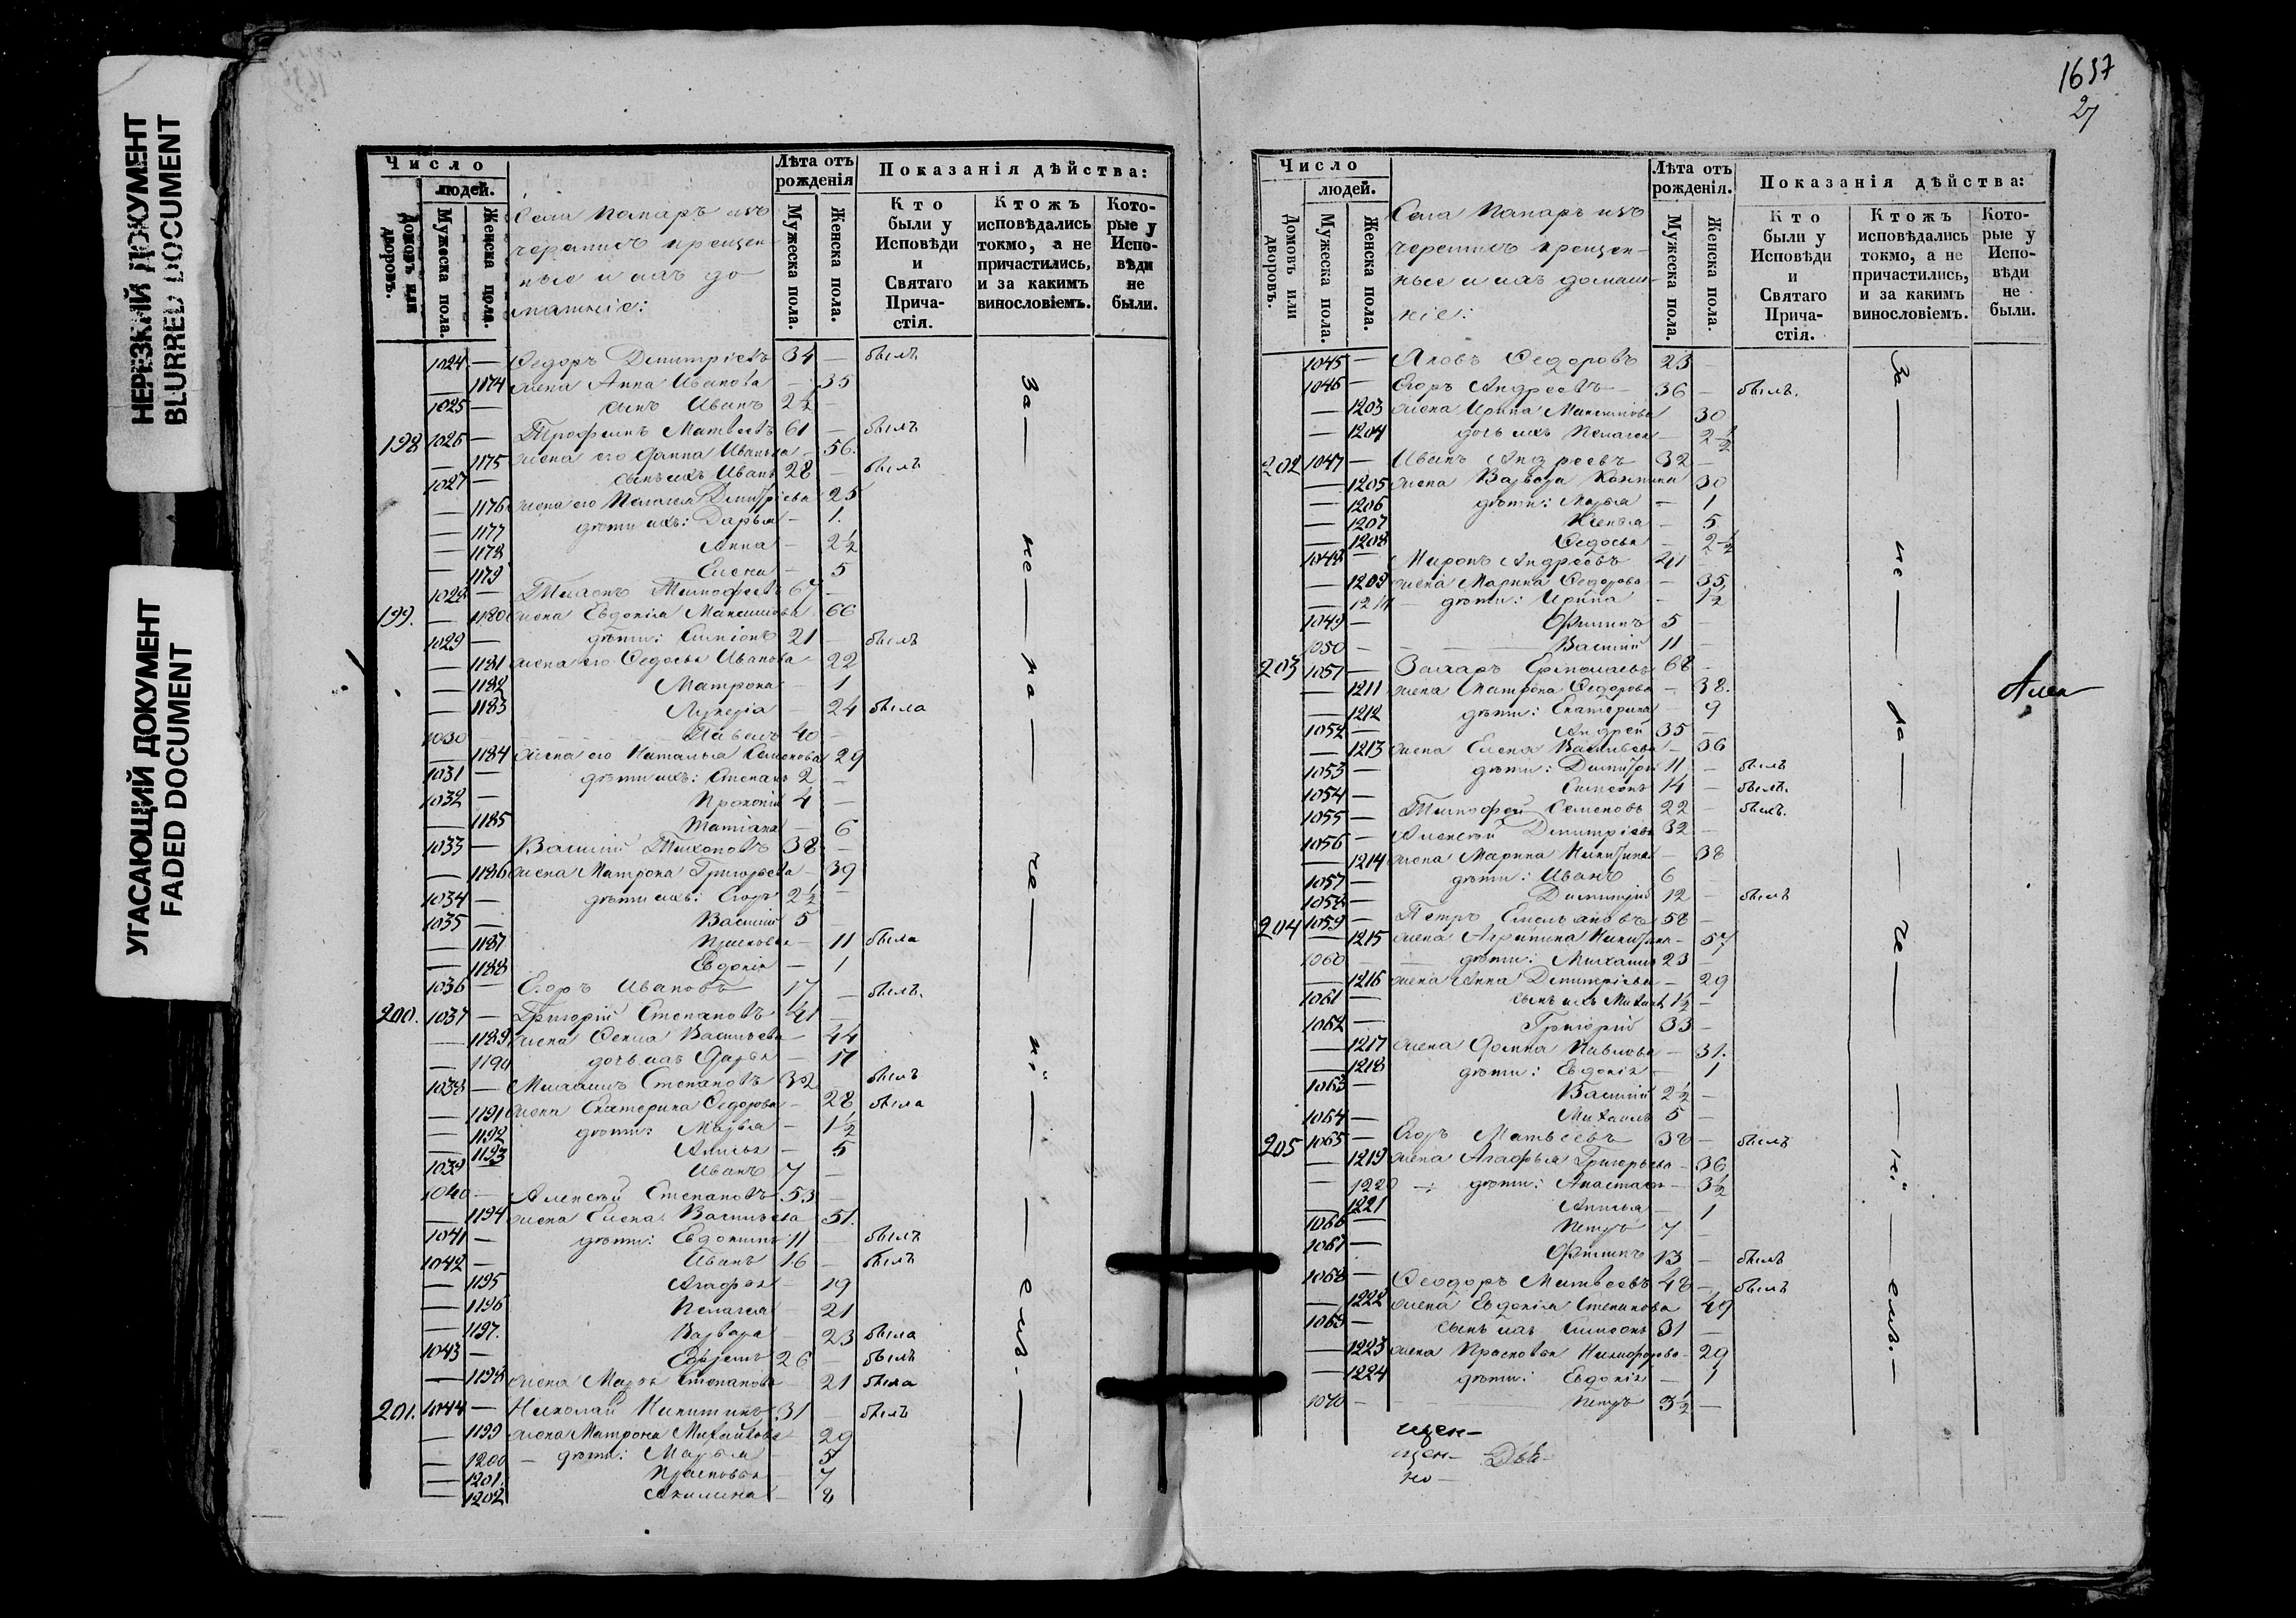 НЕРЕЗКИЙ ДОКУМЕНТ
BLURRED DOCUMENT
УГАСАЮЩИЙ ДОКУМЕНТ
FADED DOCUMENT
Число
людей.
Домовъ или дворовъ.
Мужеска пола.
Женска пола.
Села
крещен-
Лѣта отъ рожденія
Мужеска пола.
Женска пола.
Показанія дѣйства:
Кто были у Исповѣди и Святаго Прича-стія.
Ктожъ исповѣдались токмо, а не причастились, и за какимъ винословіемъ.
Кото-рые у Испо-вѣди не были.
1024 — Ѳедоръ Димитріевъ 34 — былъ
— 1174 жена Анна Иванова — 35
1025 — сынъ Иванъ 2½ —
198 1026 — Трофимъ Матвеевъ 61 — былъ
— 1175 жена его Иванова — 56.
1027 — сынъ ихъ Иванъ 28 — былъ
— 1176 жена его Пелагея Димитріева 25
— 1177 дѣти ихъ: Дарья — 1.
— 1178 Анна — 2½
— 1179 Елена — 5
1028 — Тихонъ Тимофеевъ 67 —
199. — 1180 жена Евдокія Максимова 66
1029 — дѣти: Симіонъ 21 — былъ
— 1181 жена его Ѳедосья Иванова — 22
— 1182 Матрона — 1
— 1183 Лукерія — 24 была
1030 — Павелъ 40 —
— 1184 жена его Наталья Семенова 29
1031 — дѣти ихъ: Степанъ 2 —
1032 — Прокопій 4 —
— 1185 Татіана — 6
1033 — Василій Тихоновъ 38 —
— 1186 жена Матрона Григорьева — 39
1034 — дѣти ихъ: Егоръ 2½ —
1035 — Василій 5
— 1187 Прасковья — 11 была
— 1188 Евдокія — 1
1036 — Егоръ Ивановъ 17 — былъ.
200. 1037 — Григорій Степановъ 41 —
— 1189 жена Васильева — 44
— 1190 дочь ихъ Дарья — 11
1038 — Михаилъ Степановъ 32 былъ
— 1191 жена Екатерина Ѳедорова — 28 была
— 1192 дѣти: Марья — 1½
— 1193 Анисья — 5
1039 — Иванъ 7 —
1040 — Алексѣй Степановъ 53 —
— 1194 жена Елена Васильева 51.
1041 — дѣти: Евдокимъ 11 — былъ
1042 — Иванъ 16 — былъ
— 1195 Агафья — 19
— 1196 Пелагея — 21
— 1197. Варвара — 23 была
1043 — Ефремъ 26 — былъ
— 1198 жена Марья Степанова — 21 была
201. 1044 — Николай Никитинъ 31 былъ
— 1199 жена Матрона Михайлова 29
— 1200 — дѣти: Марья — 5
— 1201. Прасковья — 7
— 1202 Акилина — 8
За — не — ра — че — ні — емъ. —
1637
27
Число
людей.
Домовъ или дворовъ.
Мужеска пола.
Женска пола.
Села
крещен-
ные и ихъ домаш-
ніе:
Лѣта отъ рожденія.
Мужеска пола.
Женска пола.
Показанія дѣйства:
Кто были у Исповѣди и Святаго Прича-стія.
Ктожъ исповѣдались токмо, а не причастились, и за какимъ винословіемъ.
Кото-рые у Испо-вѣди не были.
1045 — Яковъ Ѳедоровъ 23 —
1046 — Егоръ Андреевъ — 36 — былъ.
— 1203 жена Ирина Максимова 30
— 1204 дочь ихъ Пелагея — 2½
202 1047 — Иванъ Андреевъ 32 —
— 1205 жена Варвара 30
— 1206 дѣти: Марья — 1
— 1207 Ксенья — 5
— 1208 Ѳедосья — 2½
1048 — Миронъ Андреевъ 41 —
— 1209 жена Марина Ѳедорова — 35,
— дѣти: Ирина — 1½
1049 — Филипъ 5 —
1050 — Василій 11 —
203 1051 — Захаръ 68 —
— 1211 жена Матрона Ѳедорова — 38.
— 1212 дѣти: Екатерина — 9
1052 — Андрей 35 —
— 1213 жена Елена Васильева — 36
1053 — дѣти: Димитрій 11 — былъ
1054 — Симеонъ 14 — былъ.
1055 — Тимофей Семеновъ 22 — былъ.
1056 — Алексѣй Димитріевъ 32 —
— 1214 жена Марина Никитина — 38
1057 — дѣти: Иванъ 6 —
1058 — Димитрій 12 — былъ
204 1059 — Петръ Емельяновъ 58 —
— 1215 жена Агрипина Никитина — 57
1060 — дѣти: Михаилъ 23 —
— 1216 жена Анна Димитріева — 29
1061 — сынъ ихъ 1½ —
1062 — Григорій 33 —
— 1217 жена Домна Павлова — 31.
— 1218 дѣти: Евдокія — 1
1063 — Василій 2½ —
1064 — Михаилъ 5 —
205 1065 — Егоръ Матвеевъ 38 — былъ
— 1219 жена Агафья Григорьева — 36
— 1220 — дѣти: Анастасья — 3½
— 1221 Анисья — 1
1066 — Петръ 7 —
1067 — Филипъ 13 — былъ
1068 — Ѳеодоръ Матвеевъ 48 — былъ
— 1222 жена Евдокія Степанова 49
1069 — сынъ ихъ Симеонъ 31 —
— 1223 жена Прасковья Никифорова — 29
— 1224 дѣти: Евдокія — 1
1070 — Петръ 3½ —
За — не — ра — че — ні — емъ. —
щен-
но-